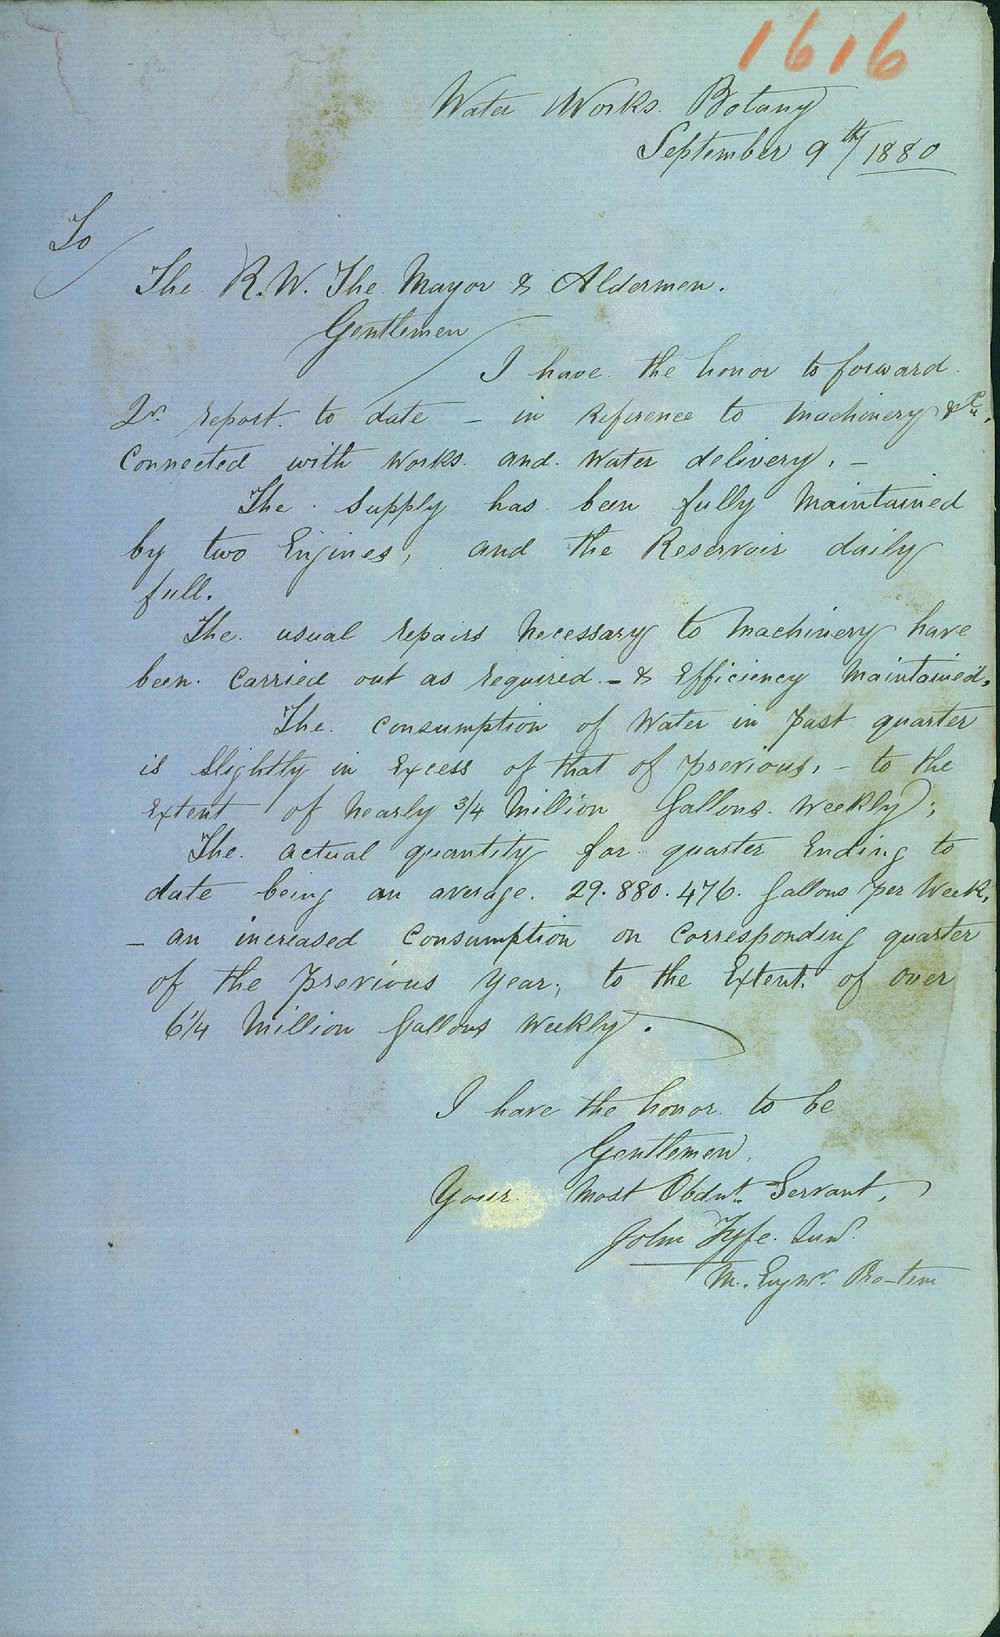 1616
Water Works. Botany
September 9th/1880
To
The R.W. The Mayor & Aldermen.
Gentlemen
I have the honor to forward
Qr. report to date – in reference to Machinery &c.
Connected with Works. and Water delivery. –
The Supply has been fully Maintained
by two Engines, and the Reservoir daily
full.
The usual repairs Necessary to Machinery have
been Carried out as required – & Efficiency Maintained.
The Consumption of Water in past quarter
is Slightly in Excess of that of previous, – to the
Extent of Nearly 3/4 Million Gallons Weekly;
The actual quantity for quarter Ending to
date being an average. 29.880.476. Gallons per Week,
– an increased Consumption on Corresponding quarter
of the previous Year; to the Extent of over
6 1/4 Million Gallons Weekly.
I have the honor to be
Gentlemen.
Your Most Obdnt Servant,
John Fyfe. Junr.
M. Engnr. Pro-tem